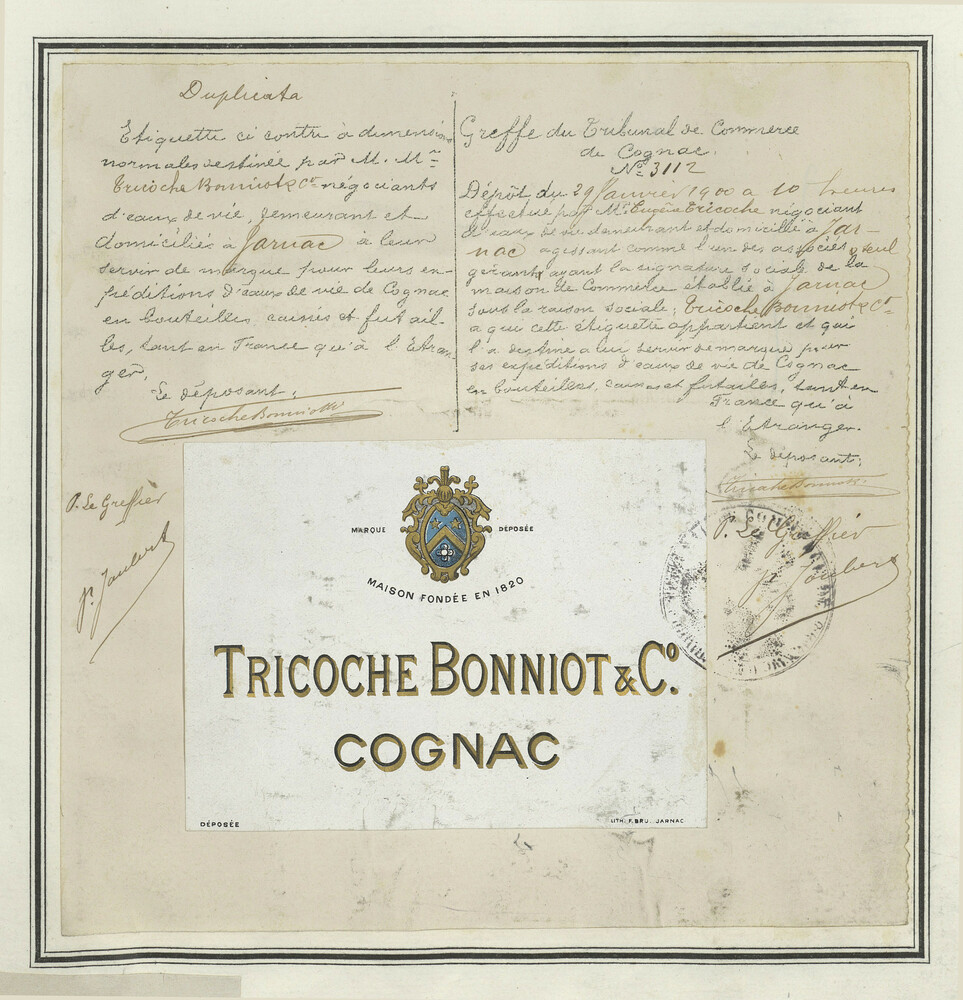 Duplicata
Etiquette ci contre à dimensions
normales destinée par M. Mrs
Tricoche Bonniot & Cie négociants
d'eaux de vie, demeurant et
domiciliés à Jarnac à leur
servir de marque pour leurs ex-
péditions d'eaux de vie de Cognac
en bouteilles caisses et futail-
les, tant en France qu'à l'Etran-
ger.
Le déposant,
Tricoche Bonniot & Co
P. Le Greffier
P. Joubert
Greffe du Tribunal de Commerce
de Cognac.
No 3112
Dépôt du 29 Janvier 1900 à 10 heures
effectué par Mr Eugène Tricoche négociant
d'eaux de vie demeurant et domicilié à Jar-
nac agissant comme l'un des associés, seul
gérant ayant la signature sociale de la
maison de Commerce établie à Jarnac
sous la raison sociale; Tricoche Bonniot & Cie
a qui cette étiquette appartient et qui
l'a destine a lui servir de marque pour
ses expéditions d'eaux de vie de Cognac
en bouteilles, caisses et futailles, tant en
France qu'à
l'Etranger.
Le déposant;
Tricoche Bonniot & Co
P. Le Greffier
P. Joubert
MARQUE DÉPOSÉE
MAISON FONDÉE EN 1820
TRICOCHE BONNIOT & Co.
COGNAC
DÉPOSÉE
LITH. F. BRU. JARNAC